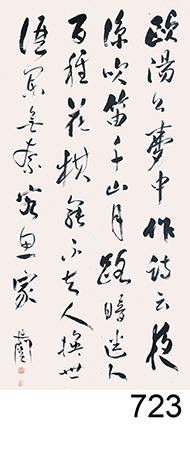 欧陽公夢中作詩云夜
涼吹笛千山月路暗迷人
百種花棋罷不知人換世
酒闌無奈客思家
723